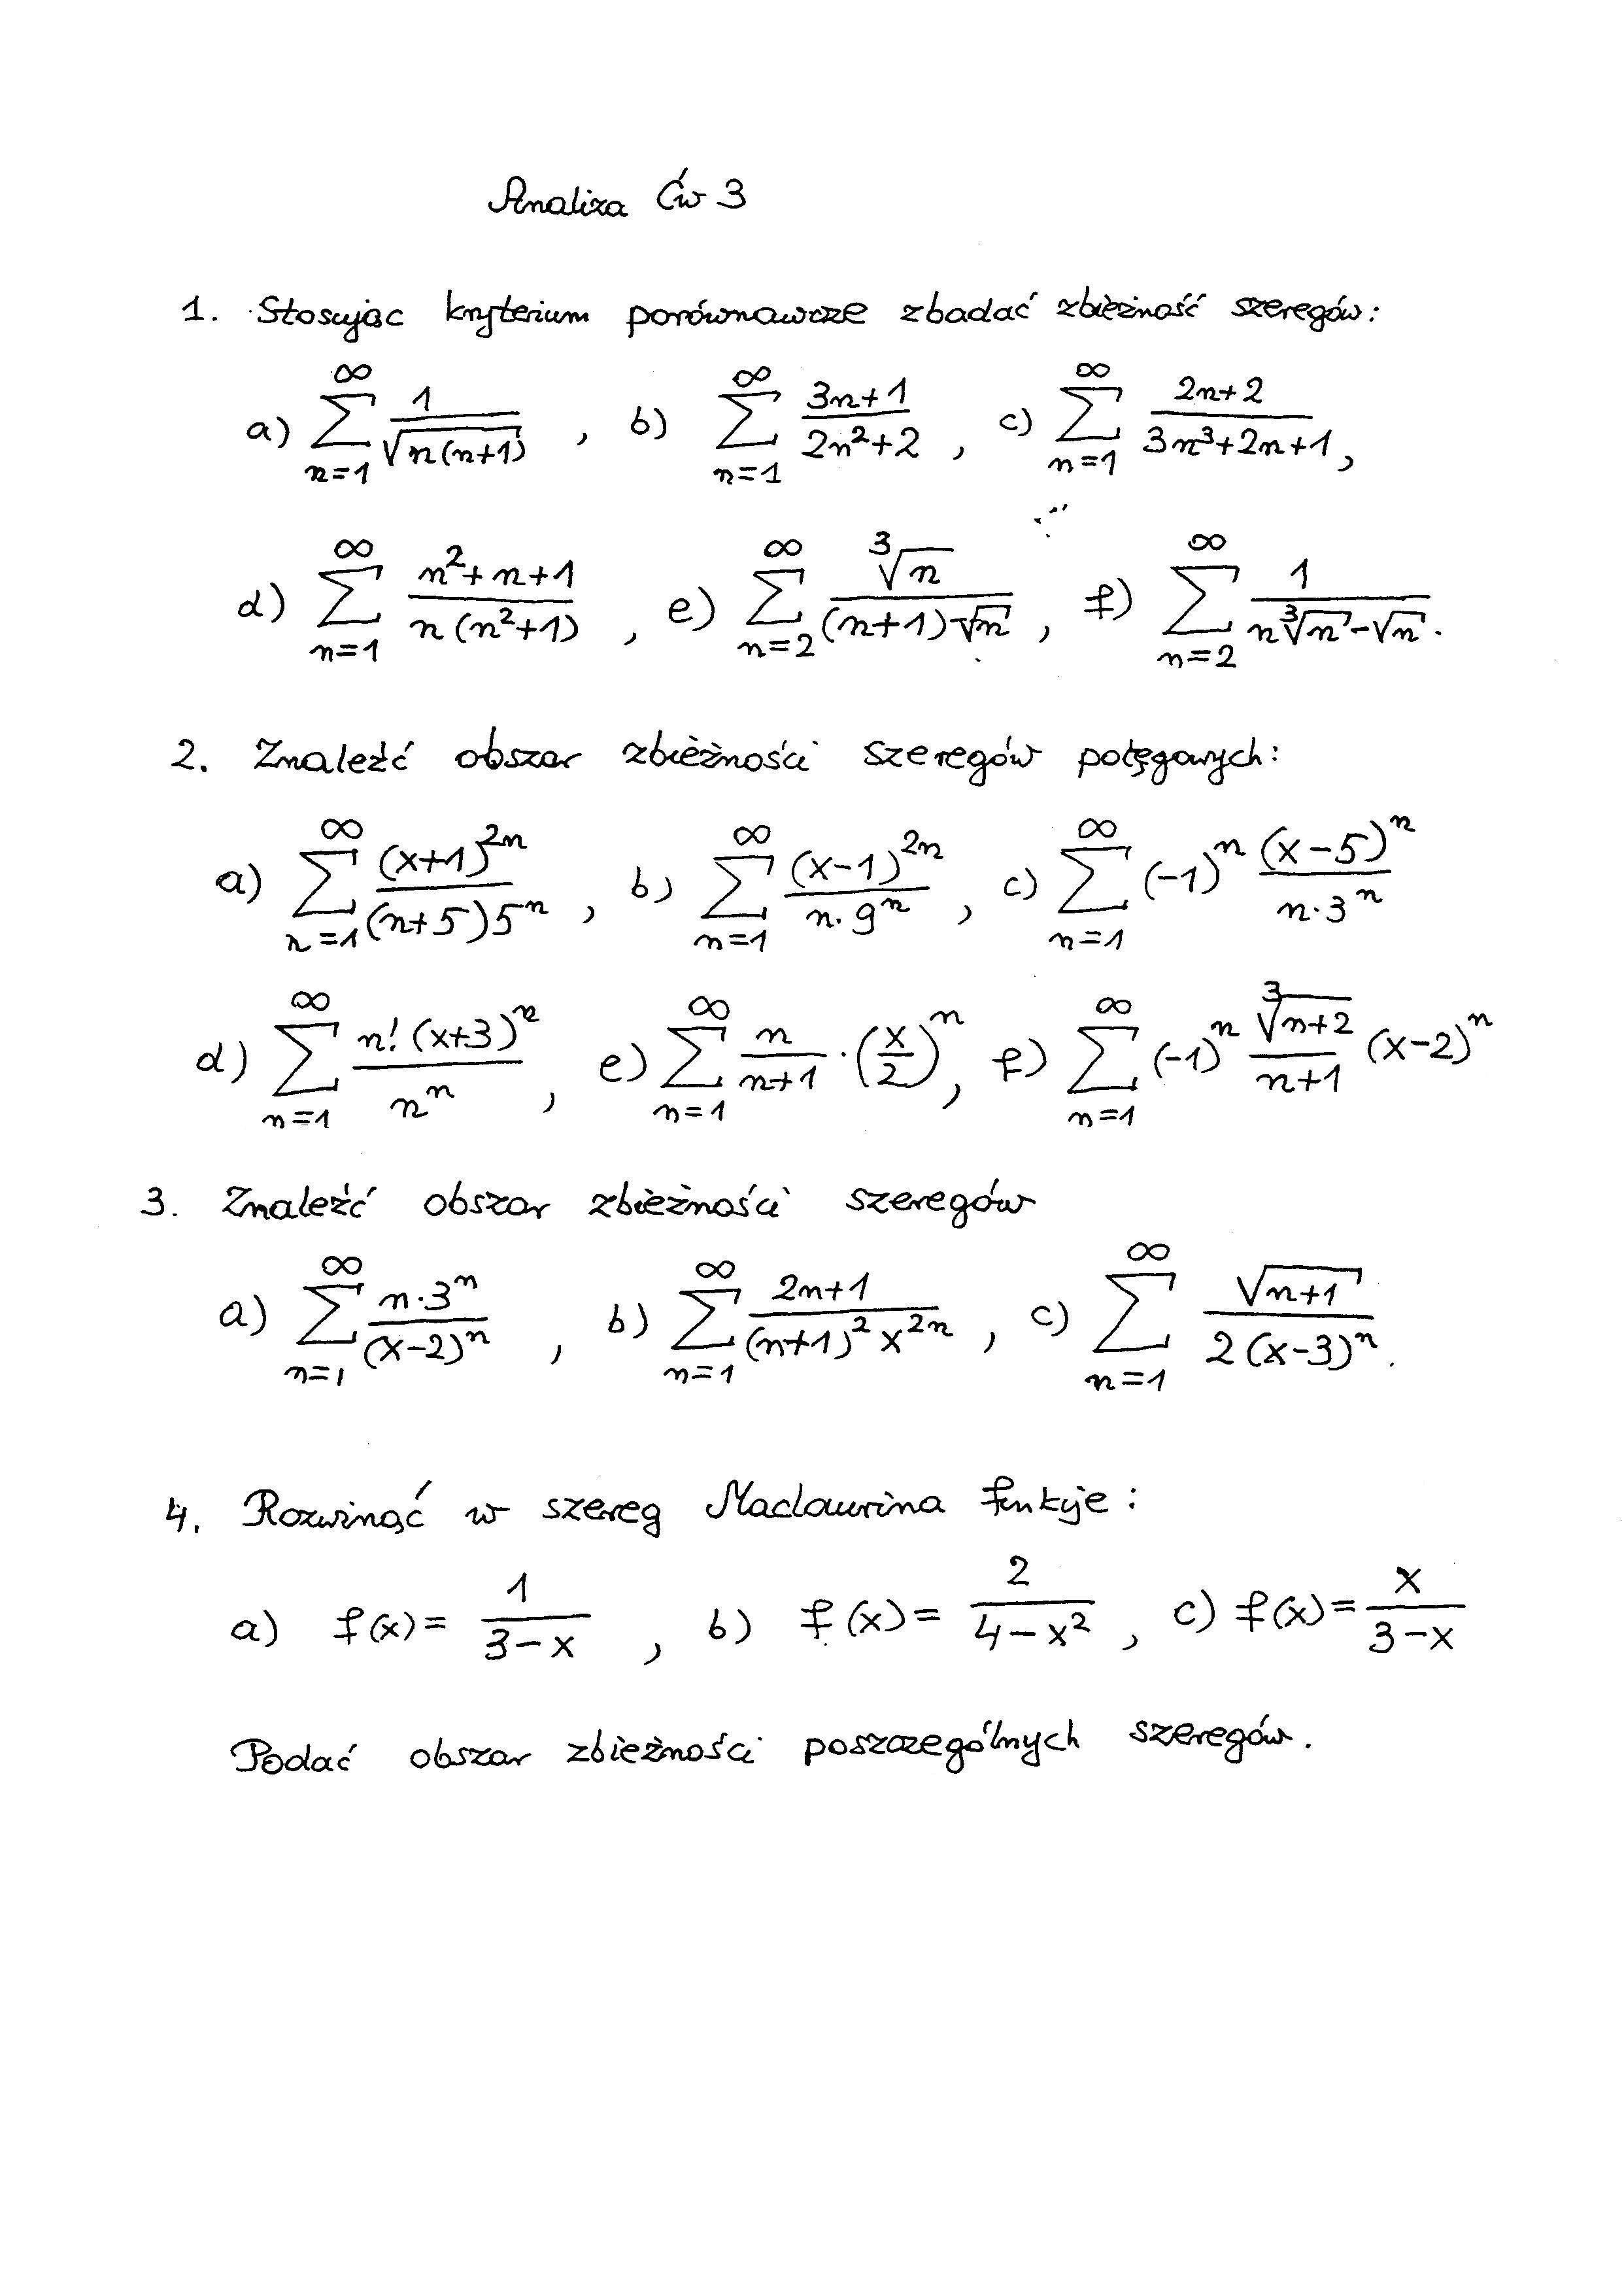 Analiza Ćw 3
1. Stosując kryterium porównawcze zbadać zbieżność szeregów:
a) \sum_{n=1}^{\infty} \frac{1}{\sqrt{n(n+1)}}, b) \sum_{n=1}^{\infty} \frac{3n+1}{2n^2+2}, c) \sum_{n=1}^{\infty} \frac{2n+2}{3n^3+2n+1},
d) \sum_{n=1}^{\infty} \frac{n^2+n+1}{n(n^2+1)}, e) \sum_{n=2}^{\infty} \frac{\sqrt[3]{n}}{(n+1)\sqrt{n}}, f) \sum_{n=2}^{\infty} \frac{1}{n\sqrt[3]{n}-\sqrt{n}}.
2. Znaleźć obszar zbieżności szeregów potęgowych:
a) \sum_{n=1}^{\infty} \frac{(x+1)^{2n}}{(n+5)5^n}, b) \sum_{n=1}^{\infty} \frac{(x-1)^{2n}}{n \cdot 9^n}, c) \sum_{n=1}^{\infty} (-1)^n \frac{(x-5)^n}{n \cdot 3^n}
d) \sum_{n=1}^{\infty} \frac{n!(x+3)^n}{n^n}, e) \sum_{n=1}^{\infty} \frac{n}{n+1} \cdot (\frac{x}{2})^n, f) \sum_{n=1}^{\infty} (-1)^n \frac{\sqrt[3]{n+2}}{n+1} (x-2)^n
3. Znaleźć obszar zbieżności szeregów
a) \sum_{n=1}^{\infty} \frac{n \cdot 3^n}{(x-2)^n}, b) \sum_{n=1}^{\infty} \frac{2n+1}{(n+1)^2 x^{2n}}, c) \sum_{n=1}^{\infty} \frac{\sqrt{n+1}}{2(x-3)^n}.
4. Rozwinąć w szereg Maclaurina funkcje:
a) f(x) = \frac{1}{3-x}, b) f(x) = \frac{2}{4-x^2}, c) f(x) = \frac{x}{3-x}
Podać obszar zbieżności poszczególnych szeregów.